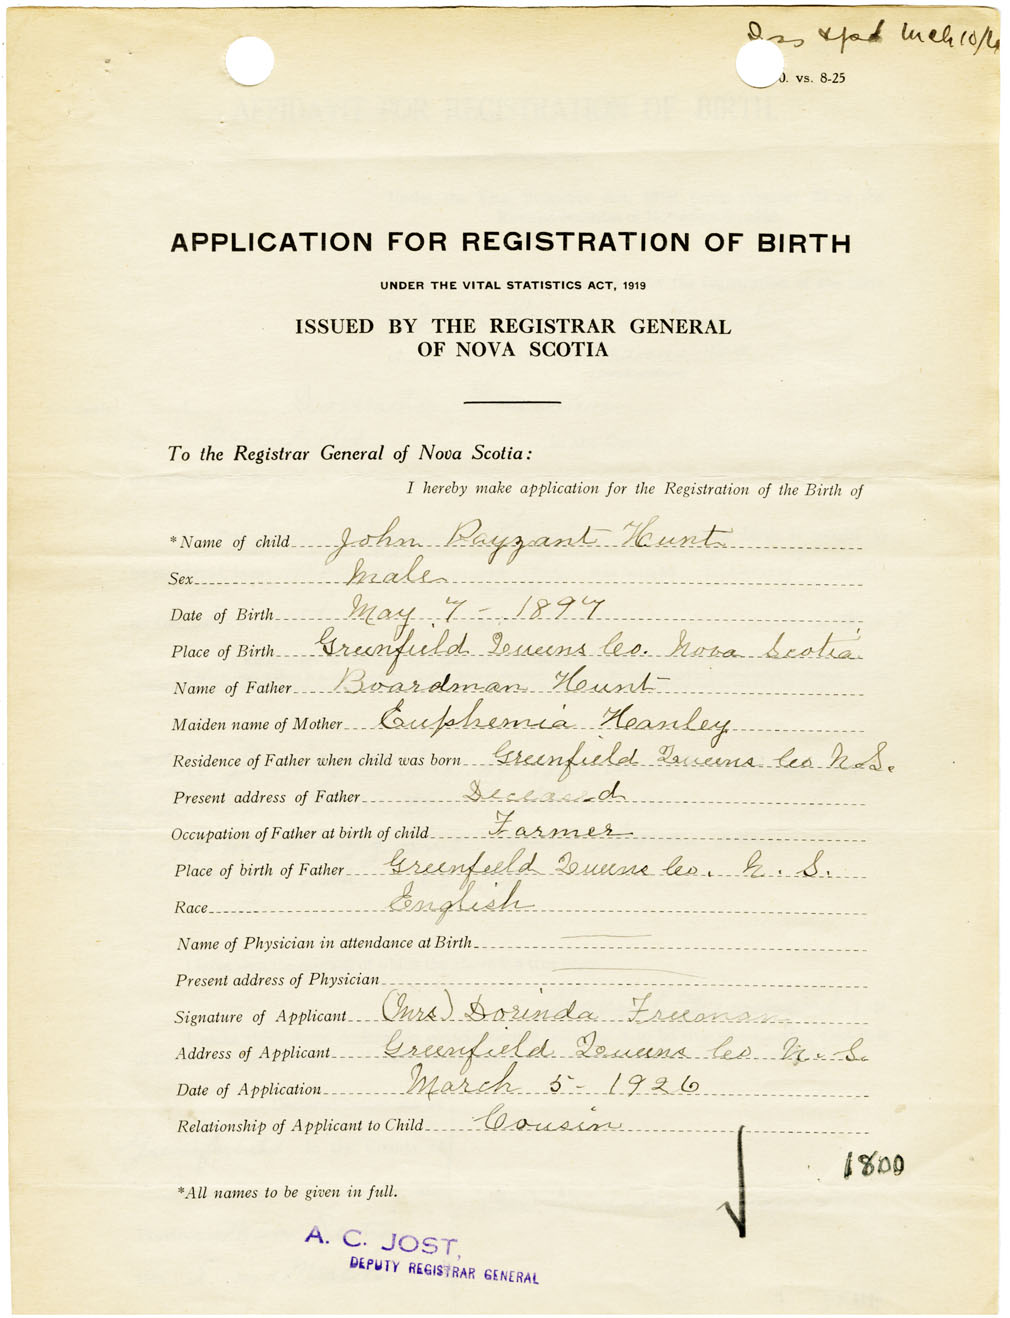 Mch 10/26
0. vs. 8-25
APPLICATION FOR REGISTRATION OF BIRTH
UNDER THE VITAL STATISTICS ACT, 1919
ISSUED BY THE REGISTRAR GENERAL
OF NOVA SCOTIA
To the Registrar General of Nova Scotia:
I hereby make application for the Registration of the Birth of
*Name of child John Payzant Hunt
Sex Male
Date of Birth May 7 - 1897
Place of Birth Greenfield Queens Co. Nova Scotia
Name of Father Boardman Hunt
Maiden name of Mother Euphemia Hanley
Residence of Father when child was born Greenfield Queens Co N.S.
Present address of Father Deceased
Occupation of Father at birth of child Farmer
Place of birth of Father Greenfield Queens Co. N. S.
Race English
Name of Physician in attendance at Birth
Present address of Physician
Signature of Applicant (Mrs) Dorinda Freeman
Address of Applicant Greenfield Queens Co N. S.
Date of Application March 5 - 1926
Relationship of Applicant to Child Cousin
1800
*All names to be given in full.
A. C. JOST,
DEPUTY REGISTRAR GENERAL